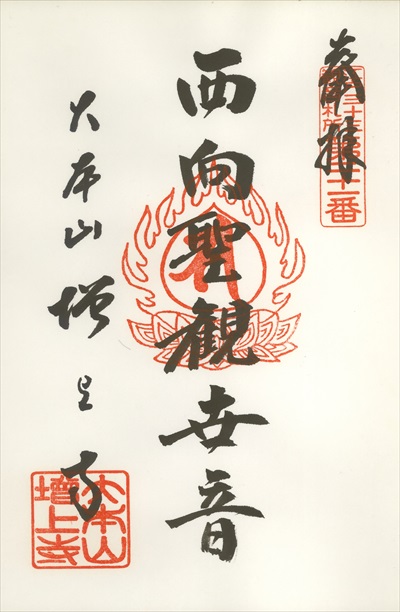 奉拝
西向聖観世音
大本山増上寺
大本山
増上寺